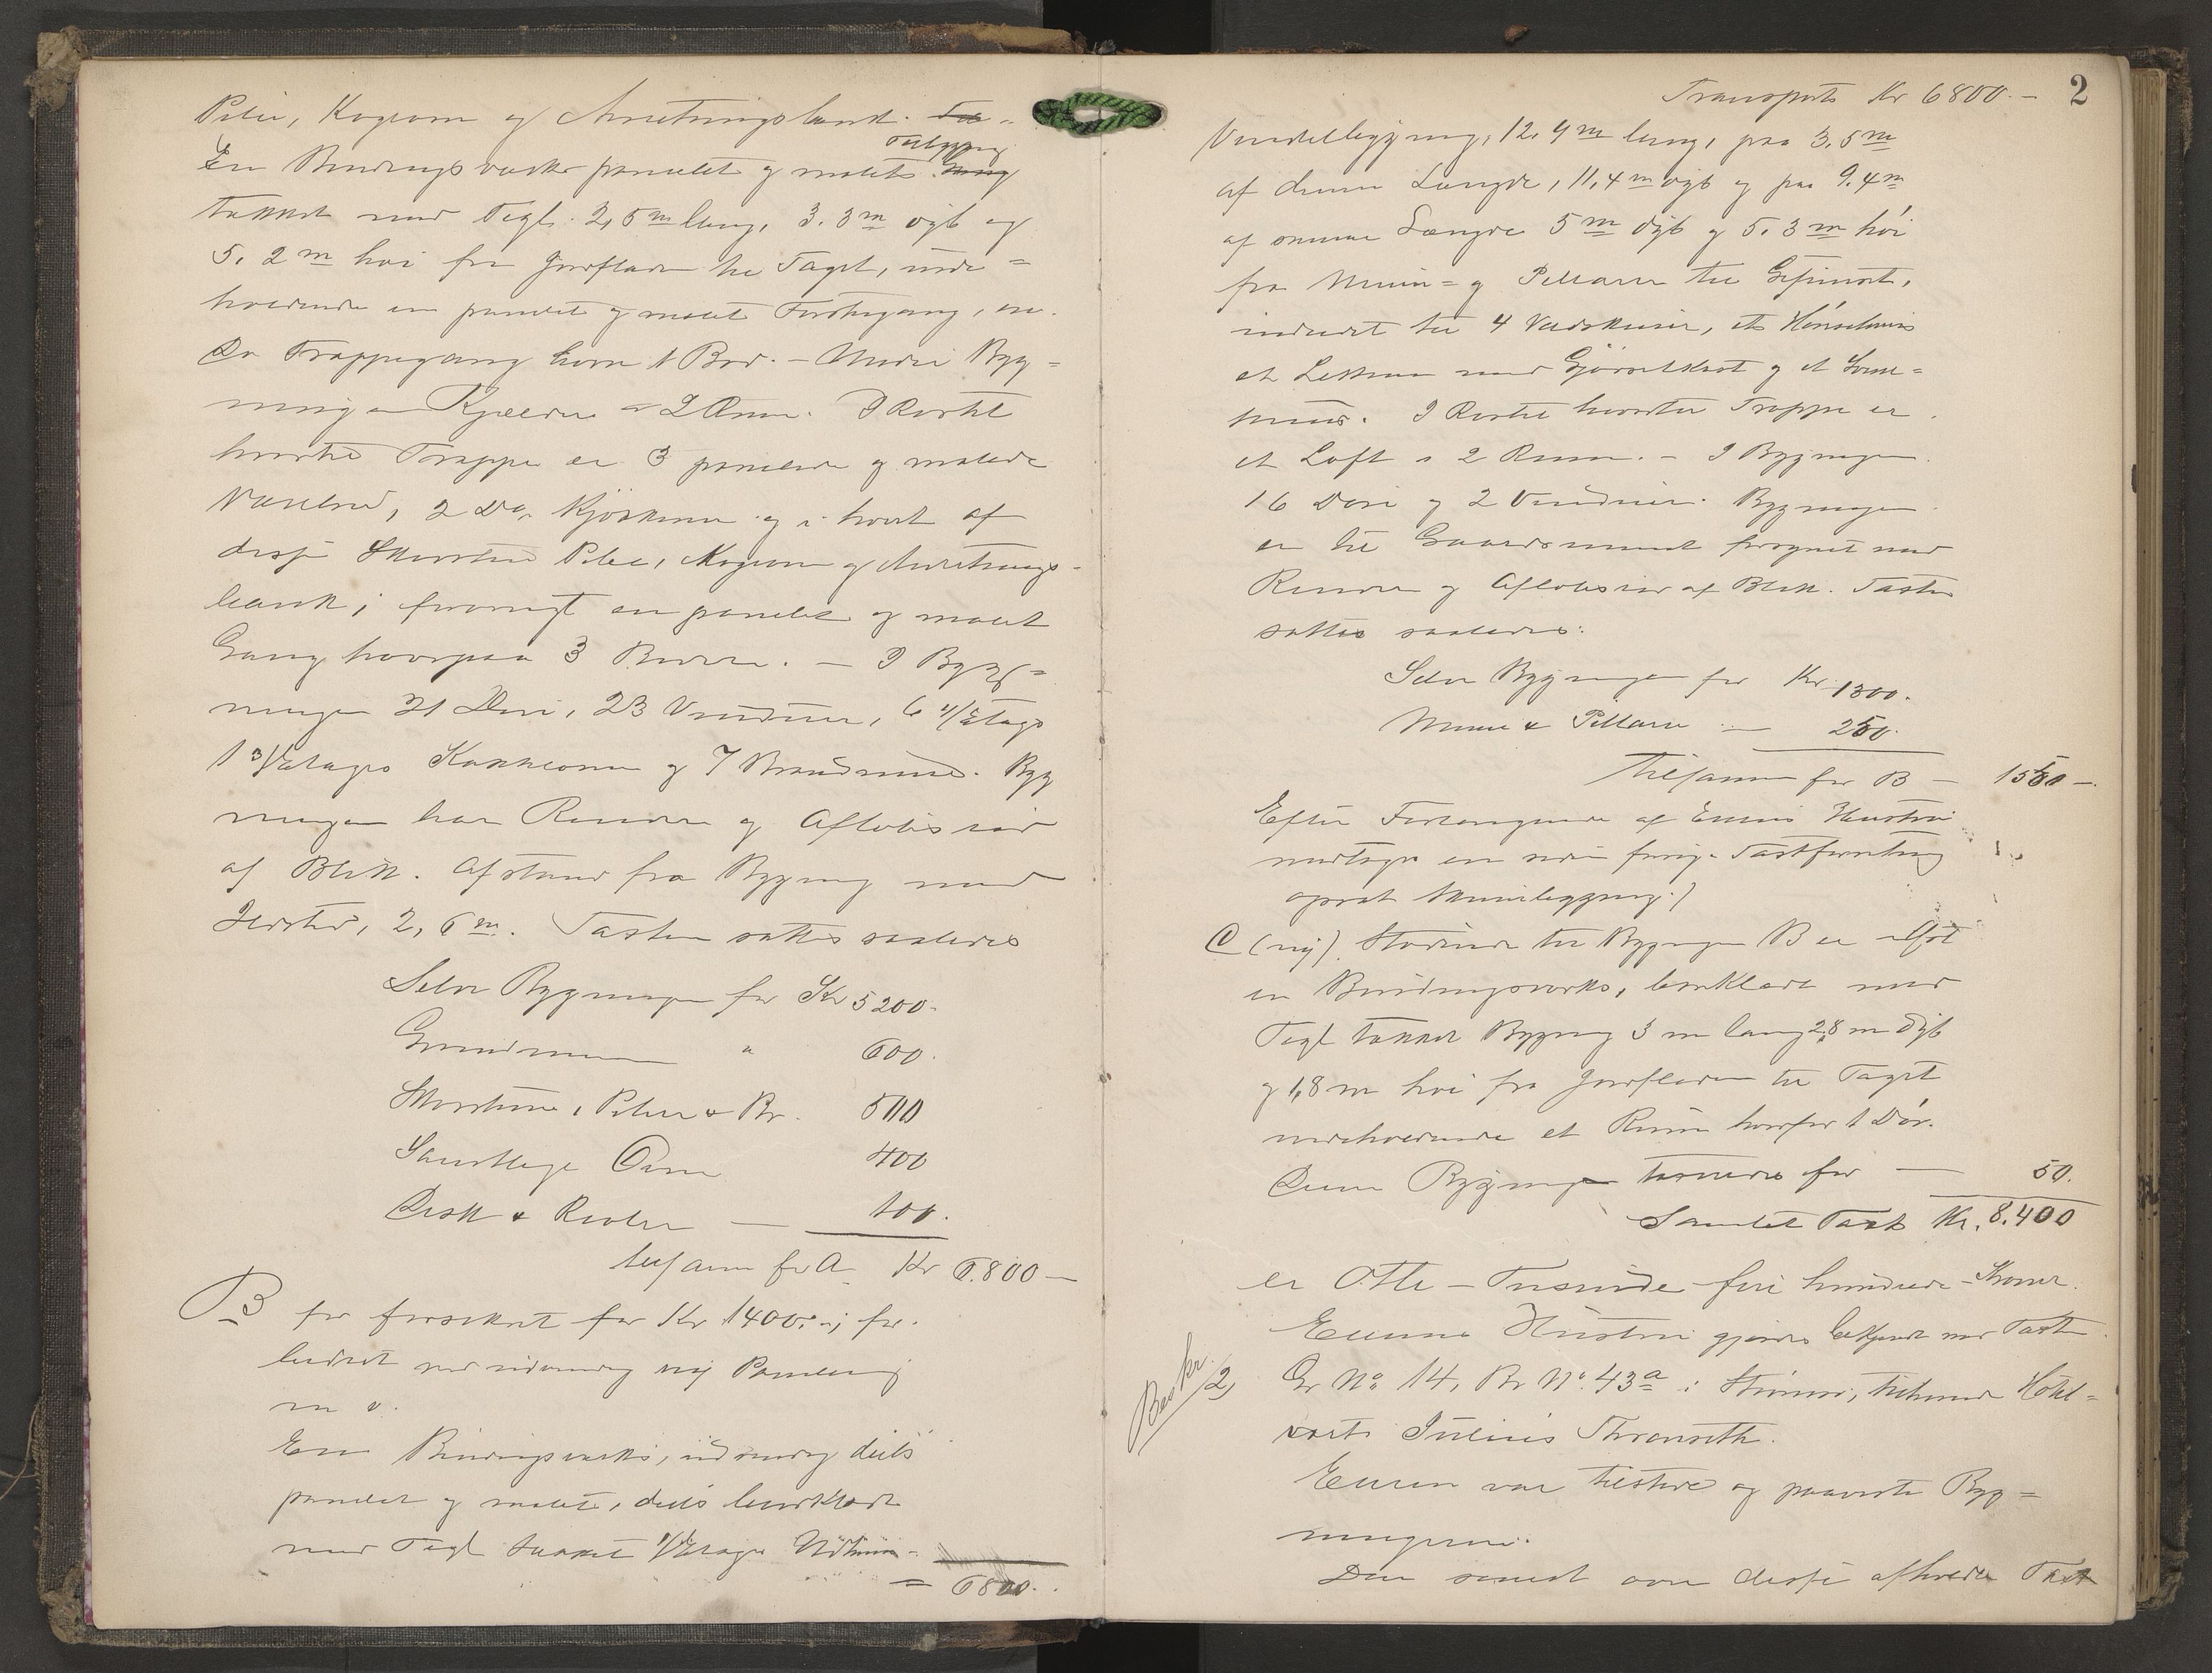 Piber, Kogeovn og Anretningsbænk.
Tilbygning
En Bindingsværks panelet og malet
tækket med Tegl. 2,5 m lang, 3.3 m dyb og
5.2 m høi fra Jordfladen til Taget, inde-
holdende en panelet og malet Forstugang, en
Do Trappegang hvori 1 Bod. – Under Byg-
ning en Kjælder a 2 Rum. I Kvistet
hvortil Trappe er 3 panelede og malede
Værelser, 2 Do Kjøkkener og i hvert af
disse Skorsten Pibe, Kogeovn og Anretnings-
bænk; forøvrigt en panelet og malet
Gang hvorpaa 3 Boder. – I Byg-
ningen 21 Døre, 23 Vinduer, 6 2/Etages
1 3/Etages Kakkelovn og 7 Brandmure. Byg
ningen har Render og Afløbsrør
af Blik. Afstand fra Bygning mod
2,6 m. Taxten sættes saaledes
Selve Bygningen for Kr 5200.
Grundmuren " 600.
Skorstene, Piber & Br. 500
Samtlige Ovne 400
Disk & Reoler — 100.
tilsammen for A Kr 6.800 —
B før forsikret for Kr 1400.-; for-
bedret med udvendig ny Paneling
m v.
En Bindingsværks, udvendig dels
panelet og malet, dels bordklædt
med Tegl tækket 1/Etages Udhus-
= 6800.
2
Transport Kr 6800.–
bygning, 12.4 m lang, paa 3.5 m
af denne Længde, 11,4 m dyb og paa 9.4 m
af samme Længde 5 m dyb og 5.3 m høi
fra Mure- og Pillarer til Gesimset,
indredet til 4 Vedskure, et Hønsehuus
et Lokum med Gjødselkast og et
rum. I Kvistet hvortil Trappe er
et Loft a 2 Rum. – I Bygningen
16 Døre og 2 Vinduer. Bygningen
er til Gaardsrummet forsynet med
Render og Afløbsrør af Blik. Taxten
sættes saaledes:
Selve Bygningen for Kr 1300.
Mure & Pillarer — 250.
Tilsammen for B — 1550 —
Efter Forlangende af Enkens Hustru
medtages en under forrige Taxtforretning
C (ny). Stødende til Bygningen B er
en Bindingsværks, bordklædt med
Tegl tækket Bygning 3 m lang 2,8 m dyb
og 1,8 m høi fra Jordfladen til Taget
indeholdende et Rum hvorfor 1 Dør.
Denne Bygning taxeres for — 50.
Samlet Taxt Kr. 8.400
er Otte – Tusinde fire hundrede – Kroner.
Eierens Hustru gjordes bekjendt med Taxten
Beskr.
2) Gr No. 14, Br No. 43a i Strømsø, tilhørende Hotel-
vært Julius Thranseth.
Eieren var tilstede og paaviste Byg-
ningerne.
Den senest over disse afholdte Taxt